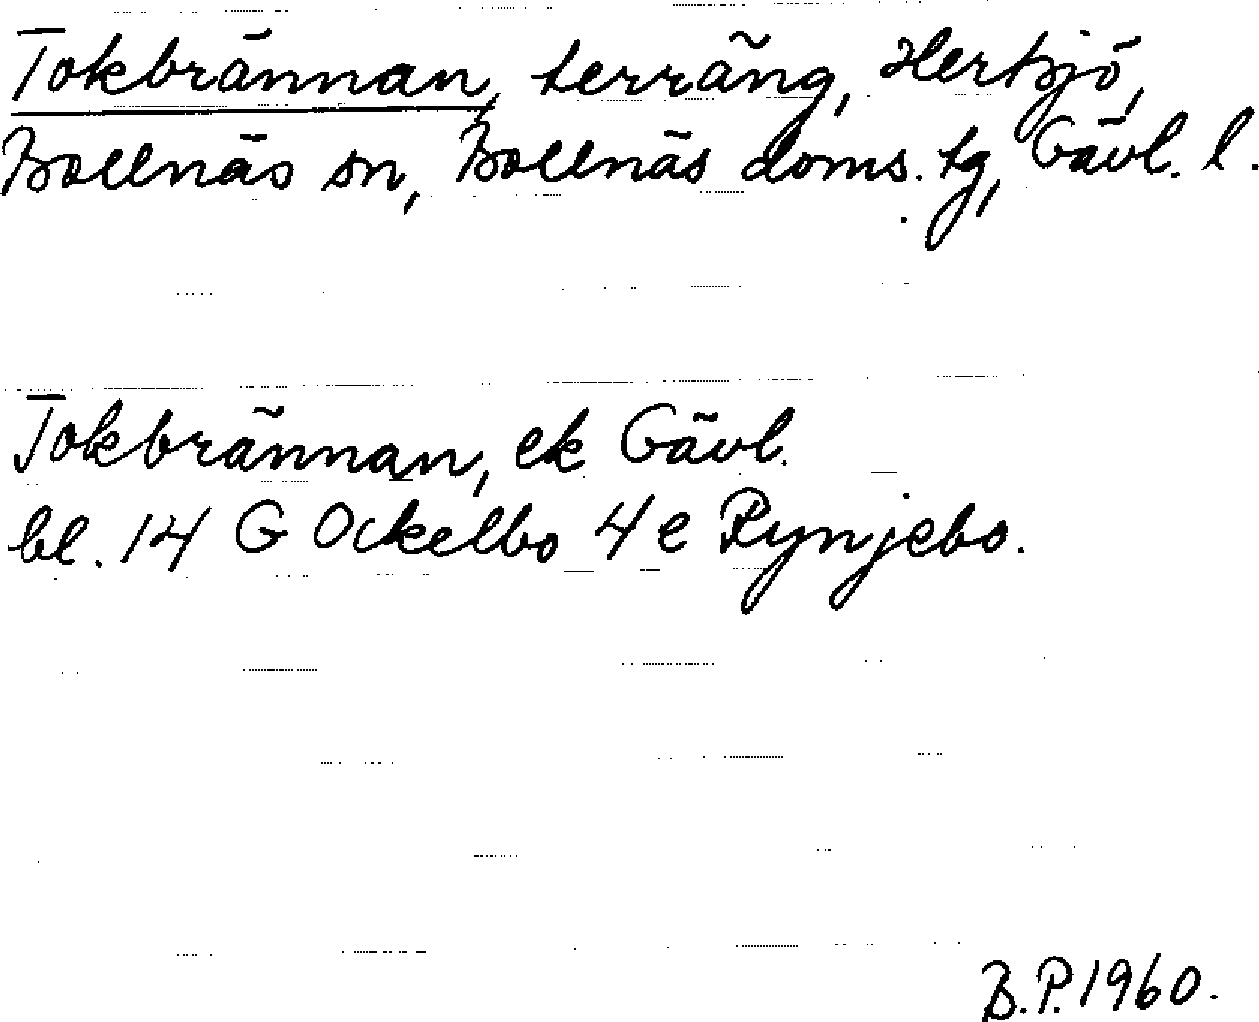 Tokbrännan, terräng, Hertsjö,
Bollnäs sn, Bollnäs doms. tg, Gävl. l.
Tokbrännan, ek Gävl.
bl. 14 G Ockelbo 4 e Rynjebo.
B.P. 1960.